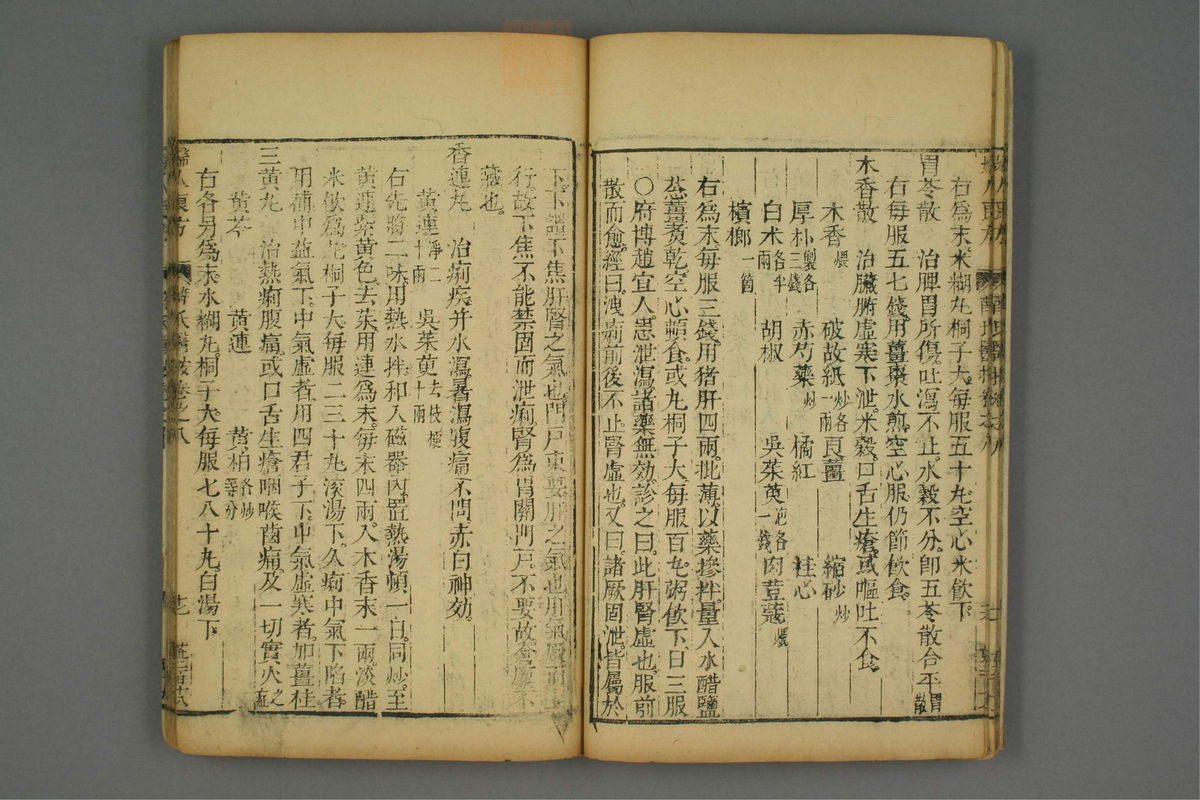 右爲末米糊丸桐子大每服五十丸空心米飲下
胃苓散 治脾胃所傷吐瀉不止水穀不分卽五苓散合平胃散
右每服五七錢用薑棗水煎空心服仍節飲食
木香散 治臟腑虛寒下泄米穀口舌生瘡或嘔吐不食
木香煨 破故紙炒各一兩 良薑 縮砂炒
厚朴製各三錢 赤芍藥炒 橘紅 桂心
白朮各半兩 胡椒 吳茱萸泡各一錢 肉荳蔻煨
檳榔一箇
右爲末每服三錢用猪肝四兩批薄以藥摻拌量入水醋鹽
葱薑煑乾空心頓食或丸桐子大每服百丸粥飲下日三服
○府博趙宜人患泄瀉諸藥無効診之曰此肝腎虛也服前
散而愈經曰洩痢前後不止腎虛也又曰諸厥固泄皆屬於
下下謂下焦肝腎之氣也門戶束要肝之氣也肝氣厥而上
行故下焦不能禁固而泄痢腎爲胃關門戶不要故倉廩不
藏也
香連丸 治痢疾并水瀉暑瀉腹痛不問赤白神効
黃連淨二十兩 吳茱萸去枝梗十兩
右先將二味用熱水拌和入磁器內置熱湯頓一日同炒至
黃連紫黃色去茱用連爲末每末四兩入木香末一兩淡醋
米飲爲丸桐子大每服二三十丸滾湯下久痢中氣下陷者
用補中益氣下中氣虛者用四君子下中氣虛寒者加薑桂
三黃丸 治熱痢腹痛或口舌生瘡咽喉齒痛及一切實火之症
黃芩 黃連 黃柏各炒等分
右各另爲末水糊丸桐子大每服七八十丸白湯下
婦人良方
卷之八